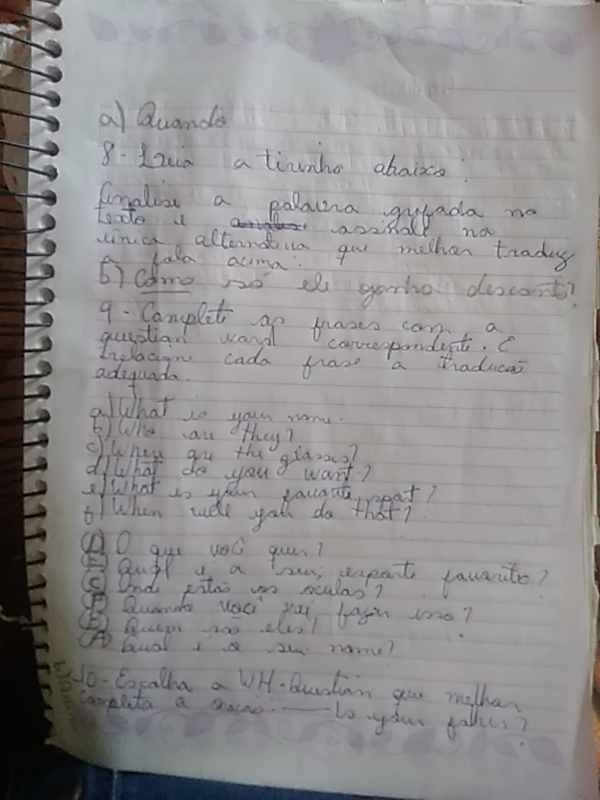 a) Quando
8 - Leia a tirinha abaixo:
Analise a palavra grifada no
texto e assinale na
única alternativa que melhor traduz
a fala acima:
b) Como só ele ganha desconto?
9 - Complete as frases com a
question word correspondente. E
relacione cada frase a tradução
adequada.
a) What is your name.
b) Who are they?
c) Where are the glasses?
d) What do you want?
e) What is your favorite sport?
f) When will you do that?
(D) O que você quer?
(E) Qual é o seu esporte favorito?
(C) Onde estão os óculos?
(F) Quando você vai fazer isso?
(B) Quem são eles?
(A) Qual é o seu nome?
10 - Escolha a WH-Question que melhor
completa a oração: ____ Is your father?